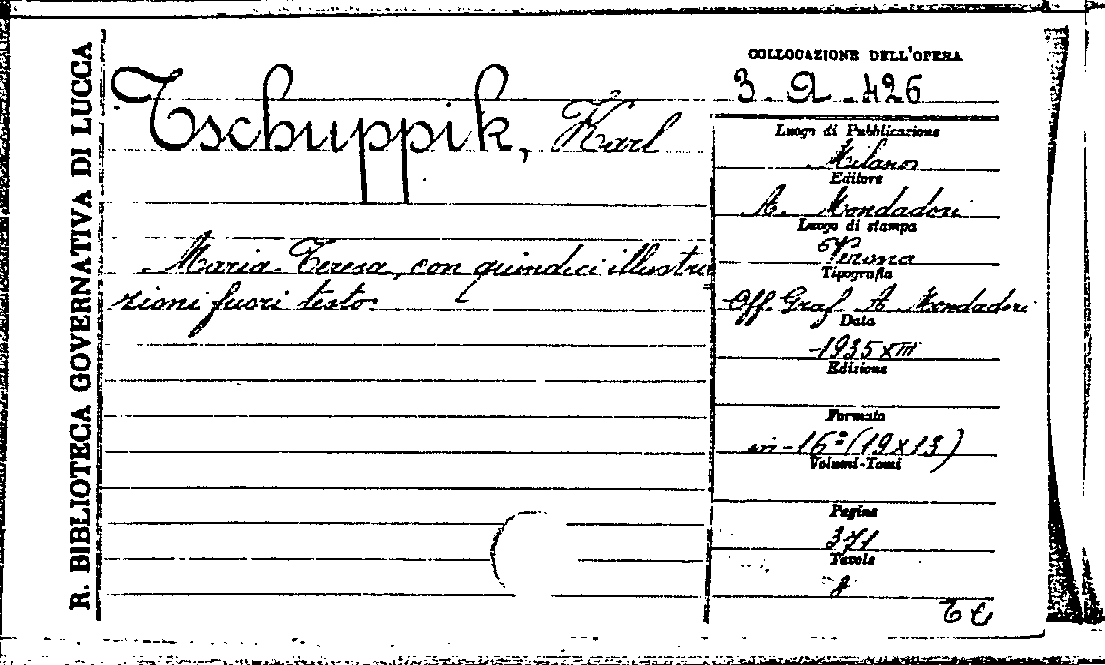 R. BIBLIOTECA GOVERNATIVA DI LUCCA
Tschuppik, Karl
Maria Teresa, con quindici illustra
zioni fuori testo.
COLLOCAZIONE DELL'OPERA
3. Ω. 426
Luogo di Pubblicazione
Milano
Editore
A. Mondadori
Luogo di stampa
Verona
Tipografia
Off. Graf. A. Mondadori
Data
1935 XIII
Edizione
Formato
in-16° (19x13)
Volumi-Tomi
Pagine
371
Tavole